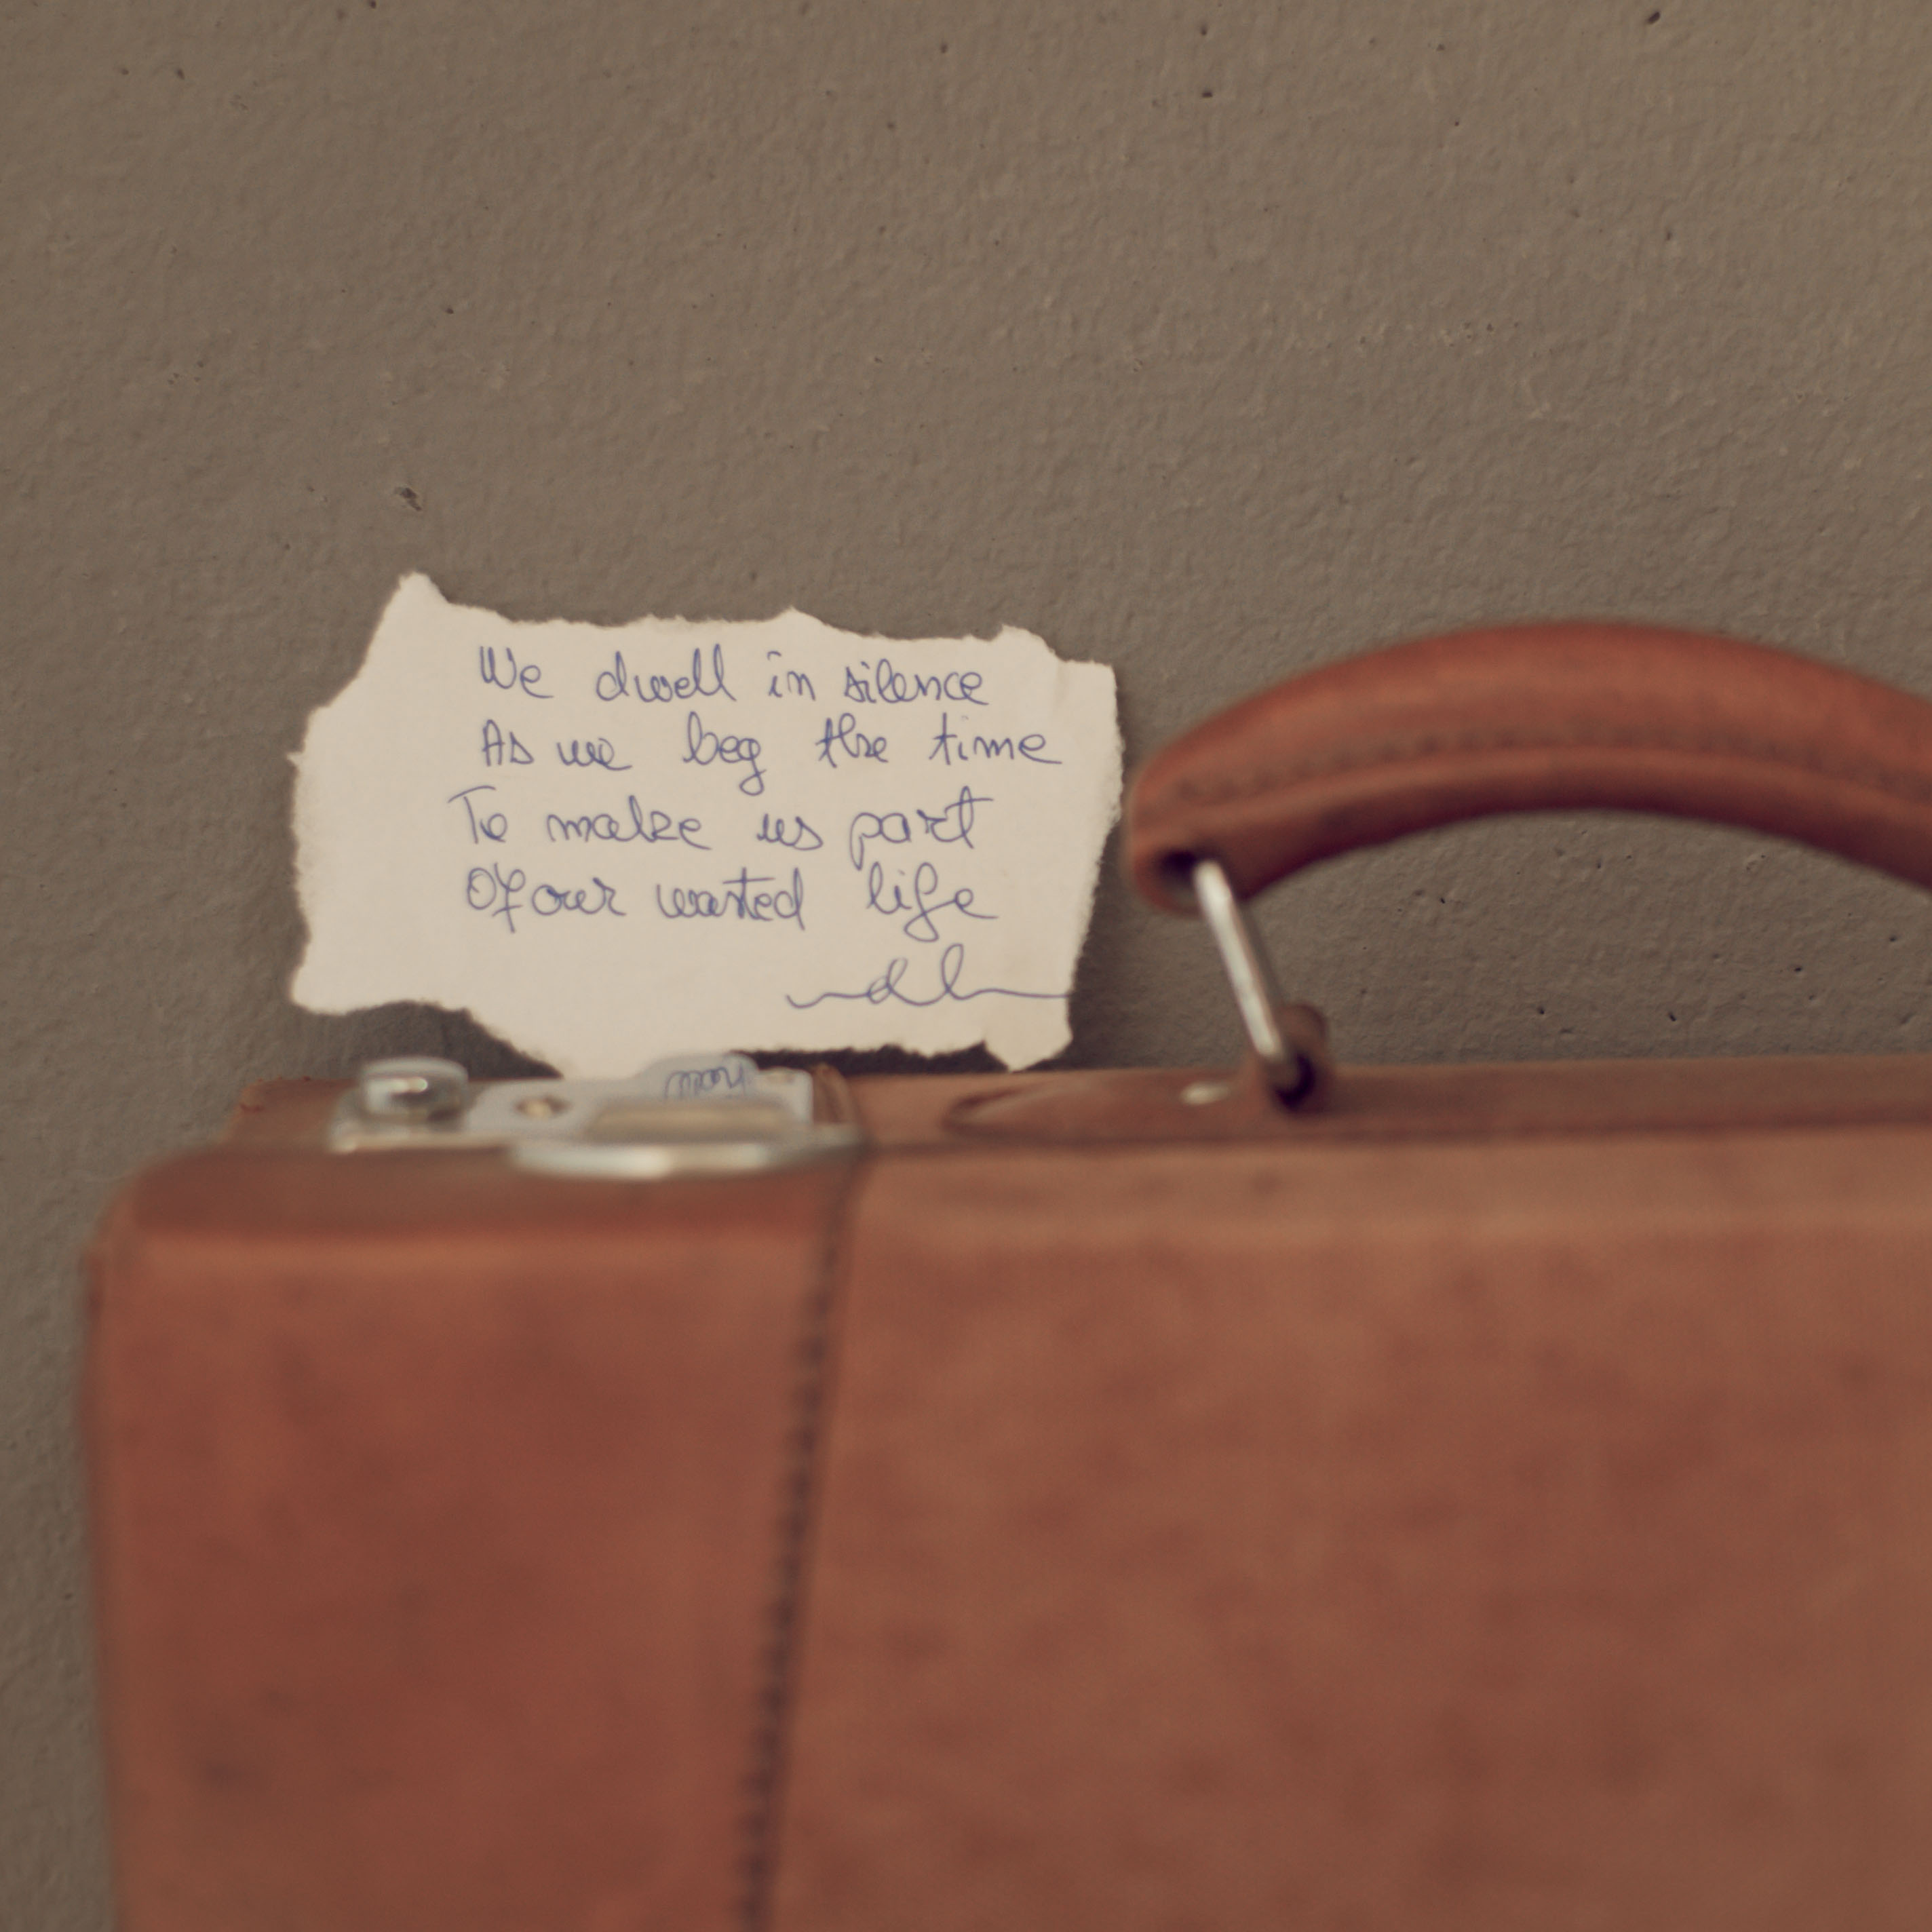 We dwell in silence
As we beg the time
To make us part
Of our wasted life